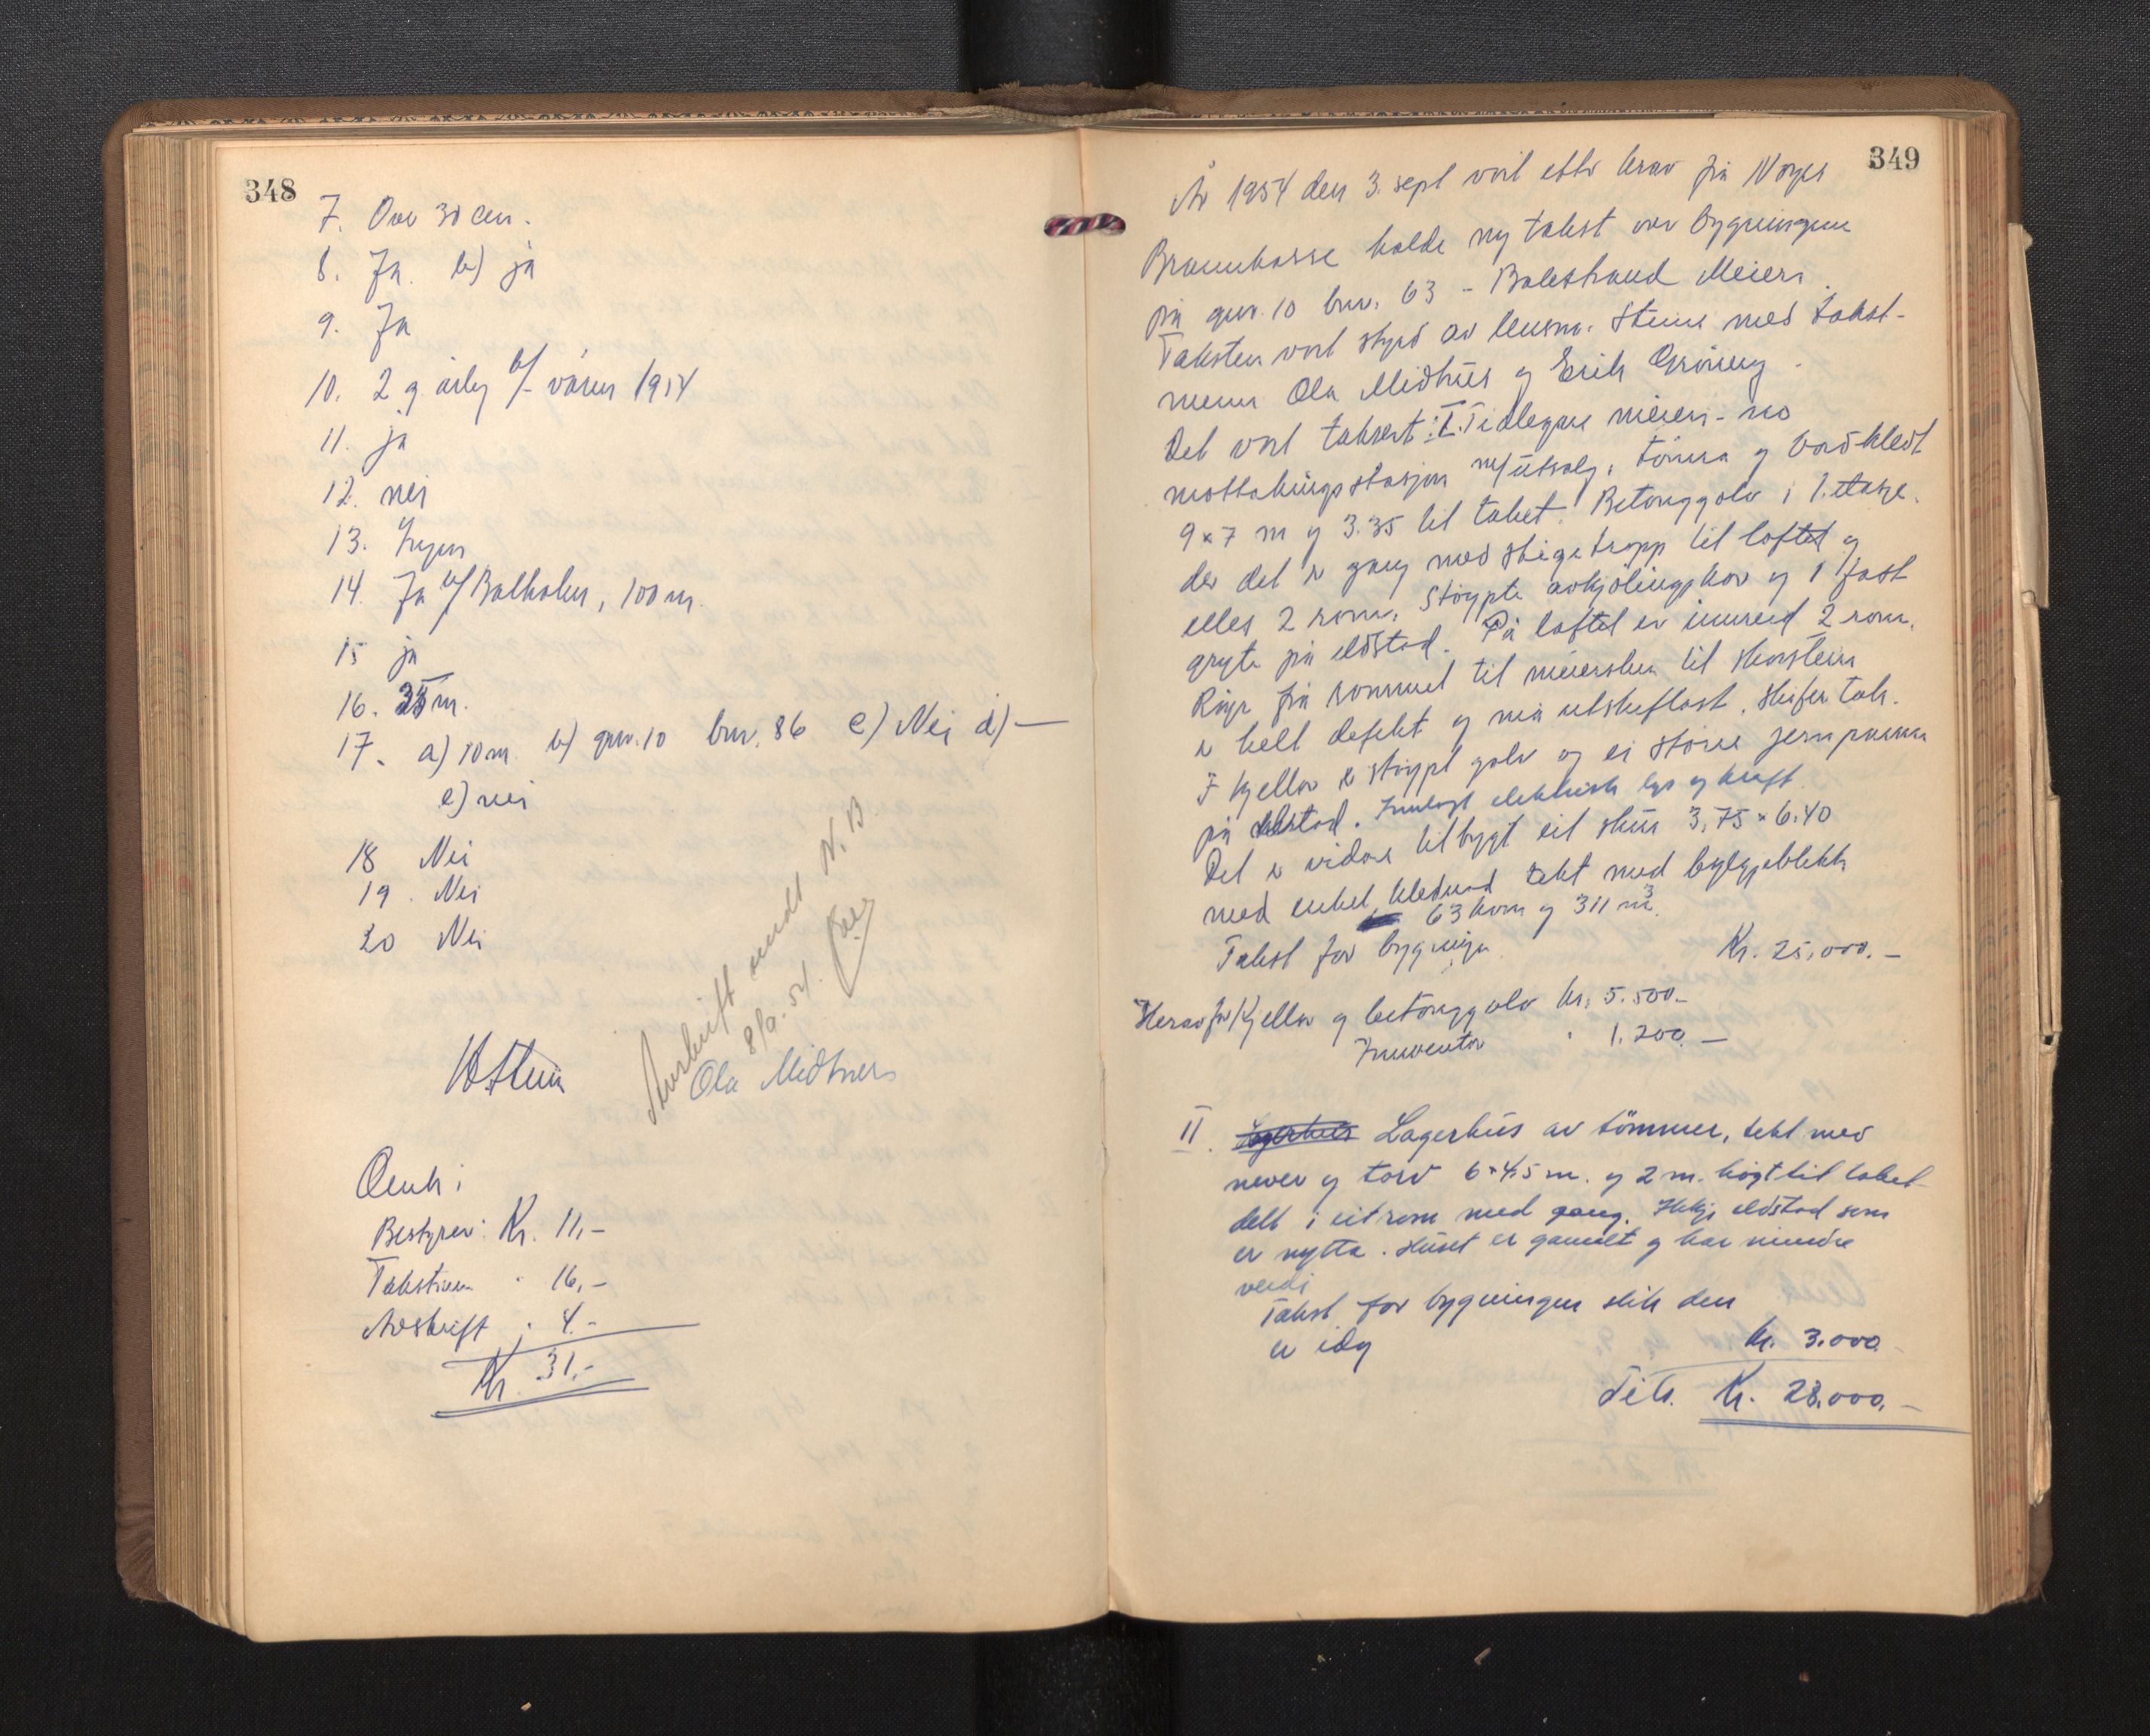 348
7. Over 30 cm.
8. Ja. b) ja
9. Ja
10. 2 g. årleg b/- våren 1954
11. ja
12. nei
13. Ingen
14. Ja b/ Balholm, 100 m.
15 ja
16. 35 m.
17. a) 10 m b) gnr. 10 bnr. 86 c) Nei d) —
e) nei
18 Nei
19. Nei
20 Nei
Avskrift sendt N. B.
8/9. 54.
Ola Midtnes
Bestyrer: Kr. 11,-
Takstmenn " 16,-
Avskrift " 4.-
Kr. 31,-
349
År 1954 den 3. sept vart etter krav frå Norges
Brannkasse halde ny takst over bygningane
på gnr. 10 bnr. 63 - Balestrand Meieri.
Taksten vart styrd av lensm. Steine med takst-
menn Ola Midtnes og Erik Grøneng.
Det vart taksert: I. Tidlegare meieri - no
mottakingsstasjon m/utsalg, tømra og bordkledt
9 x 7 m og 3.35 til taket. Betonggolv i 1. etasje.
der det er gang med stigetrapp til loftet og
elles 2 rom. Støypte avkjølingskar og 1 fast
gryte på eldstad. På loftet er innreid 2 rom.
Røyr frå rommet til meiersken til skorstein
er helt defekt og må utskiftast. Skifertak.
I kjeller er støypt golv og ei større jernpanna
på eldstad. Innlagt elektrisk lys og kraft.
Det er vidare tilbygt eit skur 3,75 x 6.40
med enkel klednad tekt med bylgjeblekk
63 kvm og 311 m³.
Takst for bygningen Kr. 25,000.-
Herav for Kjellar og betonggolv kr. 5.500.-
Inventar " 1.200.-
II. Lagerhus Lagerhus av tømmer, tekt med
never og torv 6 x 4,5 m. og 2 m. høgt til taket
delt i eit rom med gang. Ikkje eldstad som
er nytta. Huset er gamalt og har mindre
verdi
Takst for bygningen slik den
er idag kr. 3.000.-
Til s. Kr. 28.000.-